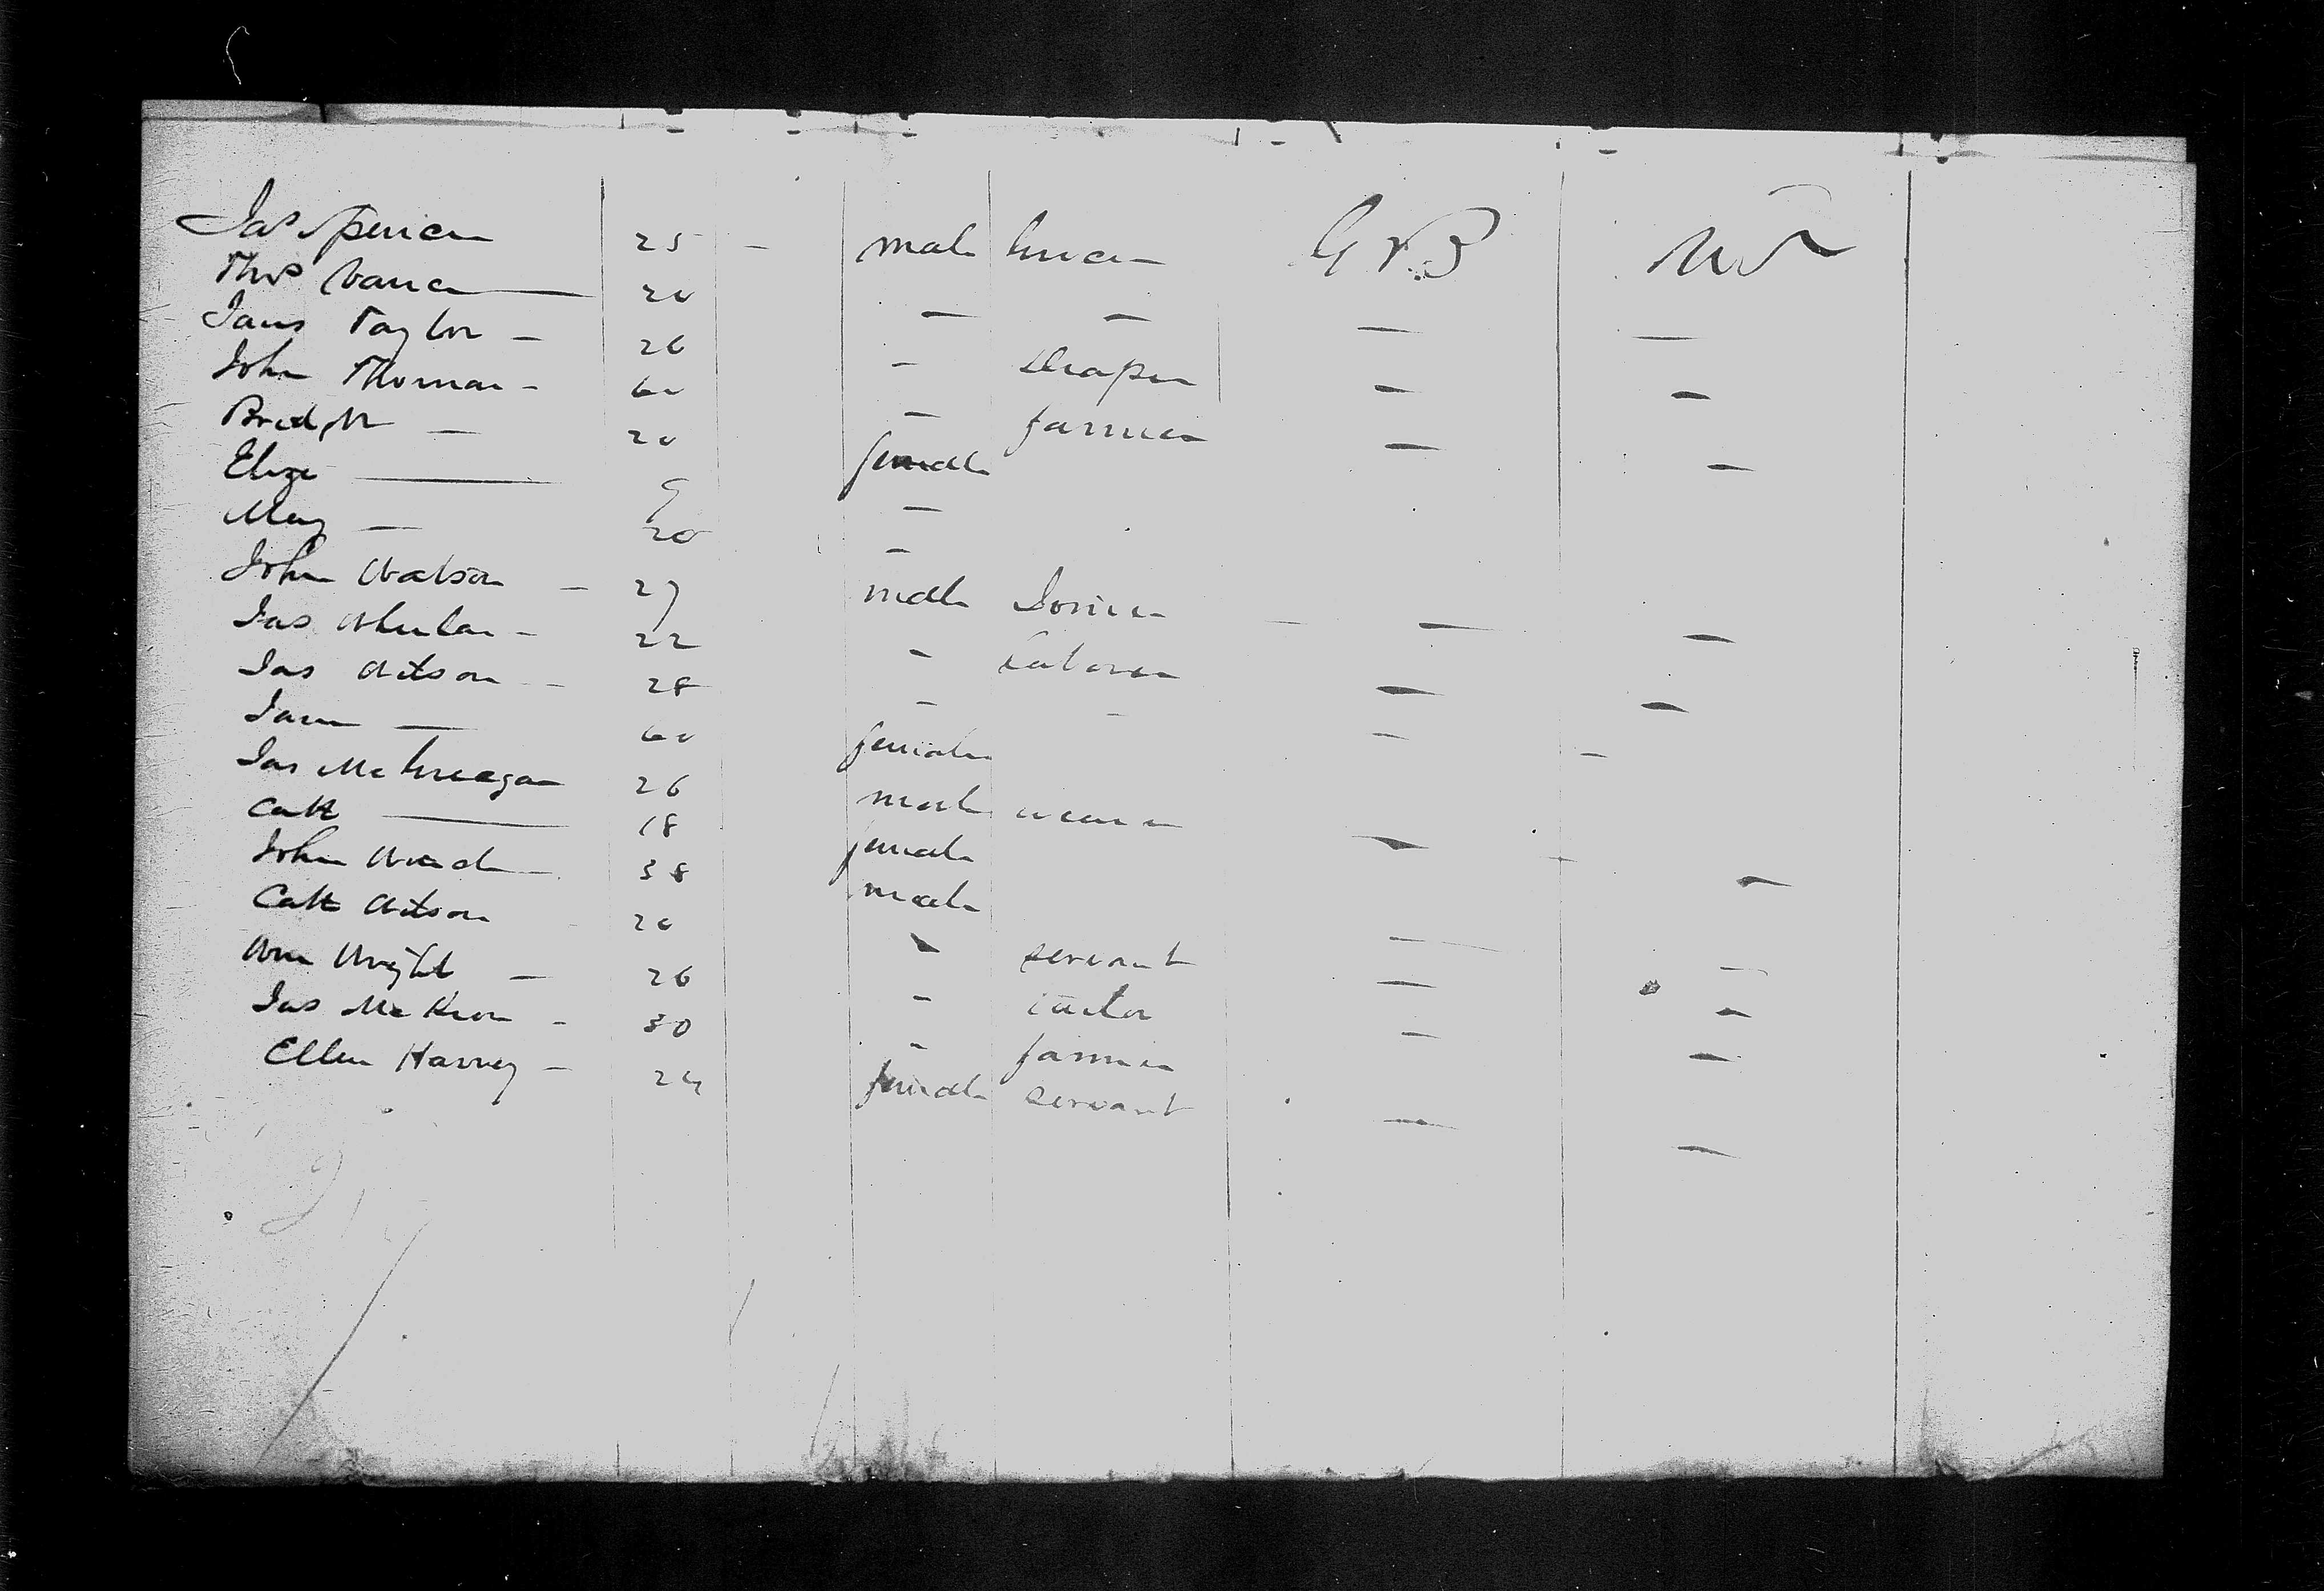 Jas Spencer 25 - male G & B US
Thos Vance 20 - - - -
James Taylor - 26 - draper - -
John Thomas - 60 - farmer - -
Bridgt - 20 female
Eliza - 9 -
Mary - 20 -
John Watson - 27 male Joiner - -
Jas Whelan - 22 - Laborer - -
Jas Watson - 28 - - - -
Jane - 60 female
Jas Mc 26 male weaver - -
Cath - 18 female
John 38 male
Cath Watson 20 servant - -
Wm Wright - 26 - tailor - -
Jas - 30 - farmer - -
Ellen Harvey - 24 female servant - -